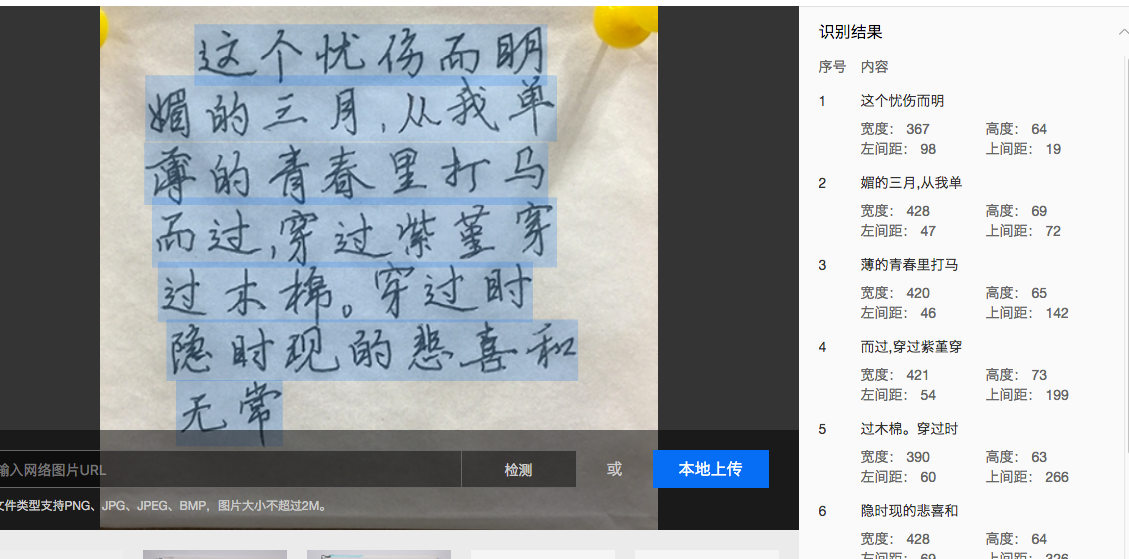 这个忧伤而明
媚的三月,从我单
薄的青春里打马
而过,穿过紫堇穿
过木棉。穿过时
隐时现的悲喜和
无常
输入网络图片URL
检测
或
本地上传
文件类型支持PNG、JPG、JPEG、BMP，图片大小不超过2M。
识别结果
序号 内容
1 这个忧伤而明
宽度： 367 高度： 64
左间距： 98 上间距： 19
2 媚的三月,从我单
宽度： 428 高度： 69
左间距： 47 上间距： 72
3 薄的青春里打马
宽度： 420 高度： 65
左间距： 46 上间距： 142
4 而过,穿过紫堇穿
宽度： 421 高度： 73
左间距： 54 上间距： 199
5 过木棉。穿过时
宽度： 390 高度： 63
左间距： 60 上间距： 266
6 隐时现的悲喜和
宽度： 428 高度： 64
左间距： 69 上间距： 326